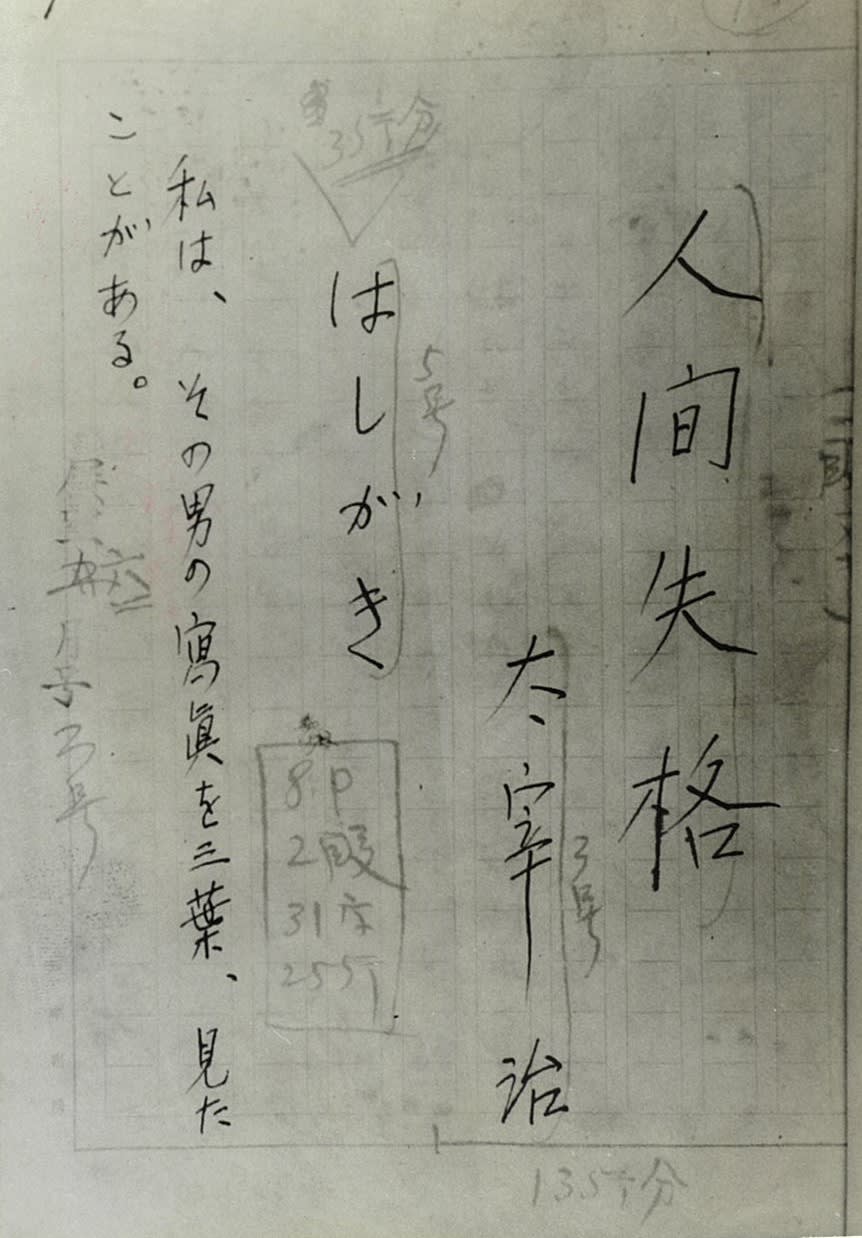 人間失格
太宰治
3号
はしがき
5号
35行分
8P
2段
31字
25行
私は、その男の寫眞を三葉、見た
ことがある。
135行分